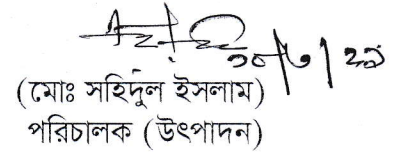 ১০/৬/২১
(মোঃ সহিদুল ইসলাম)
পরিচালক (উৎপাদন)